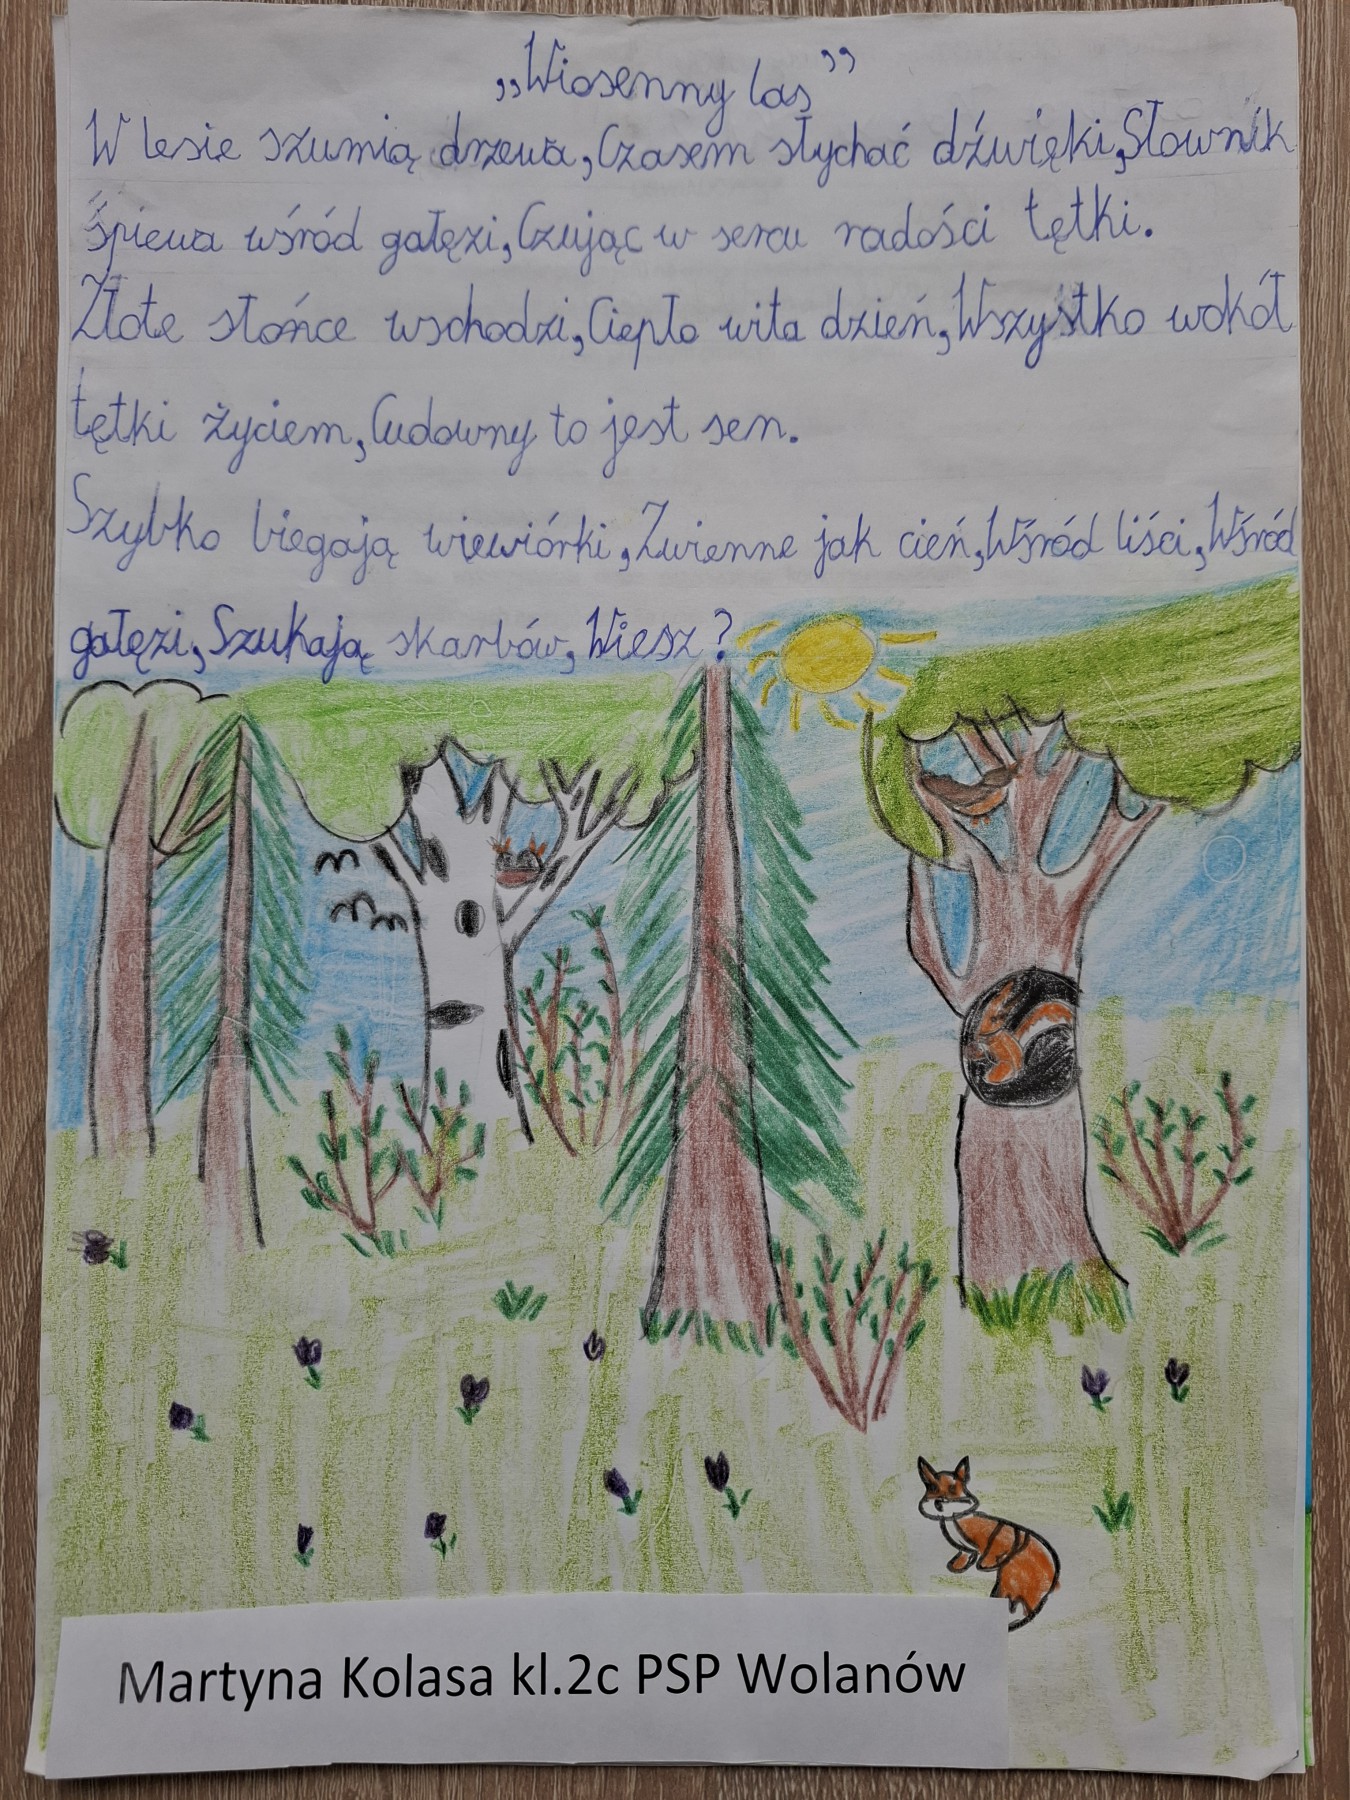 „Wiosenny las”
W lesie szumią drzewa, Czasem słychać dźwięki, Słownik
śpiewa wśród gałęzi, Czując w sercu radości tętki.
Złote słońce wschodzi, Ciepło wita dzień, Wszystko wokół
tętki życiem, Cudowny to jest sen.
Szybko biegają wiewiórki, Zwienne jak cień, Wśród liści, Wśród
gałęzi, Szukają skarbów, Wiesz?
Martyna Kolasa kl.2c PSP Wolanów